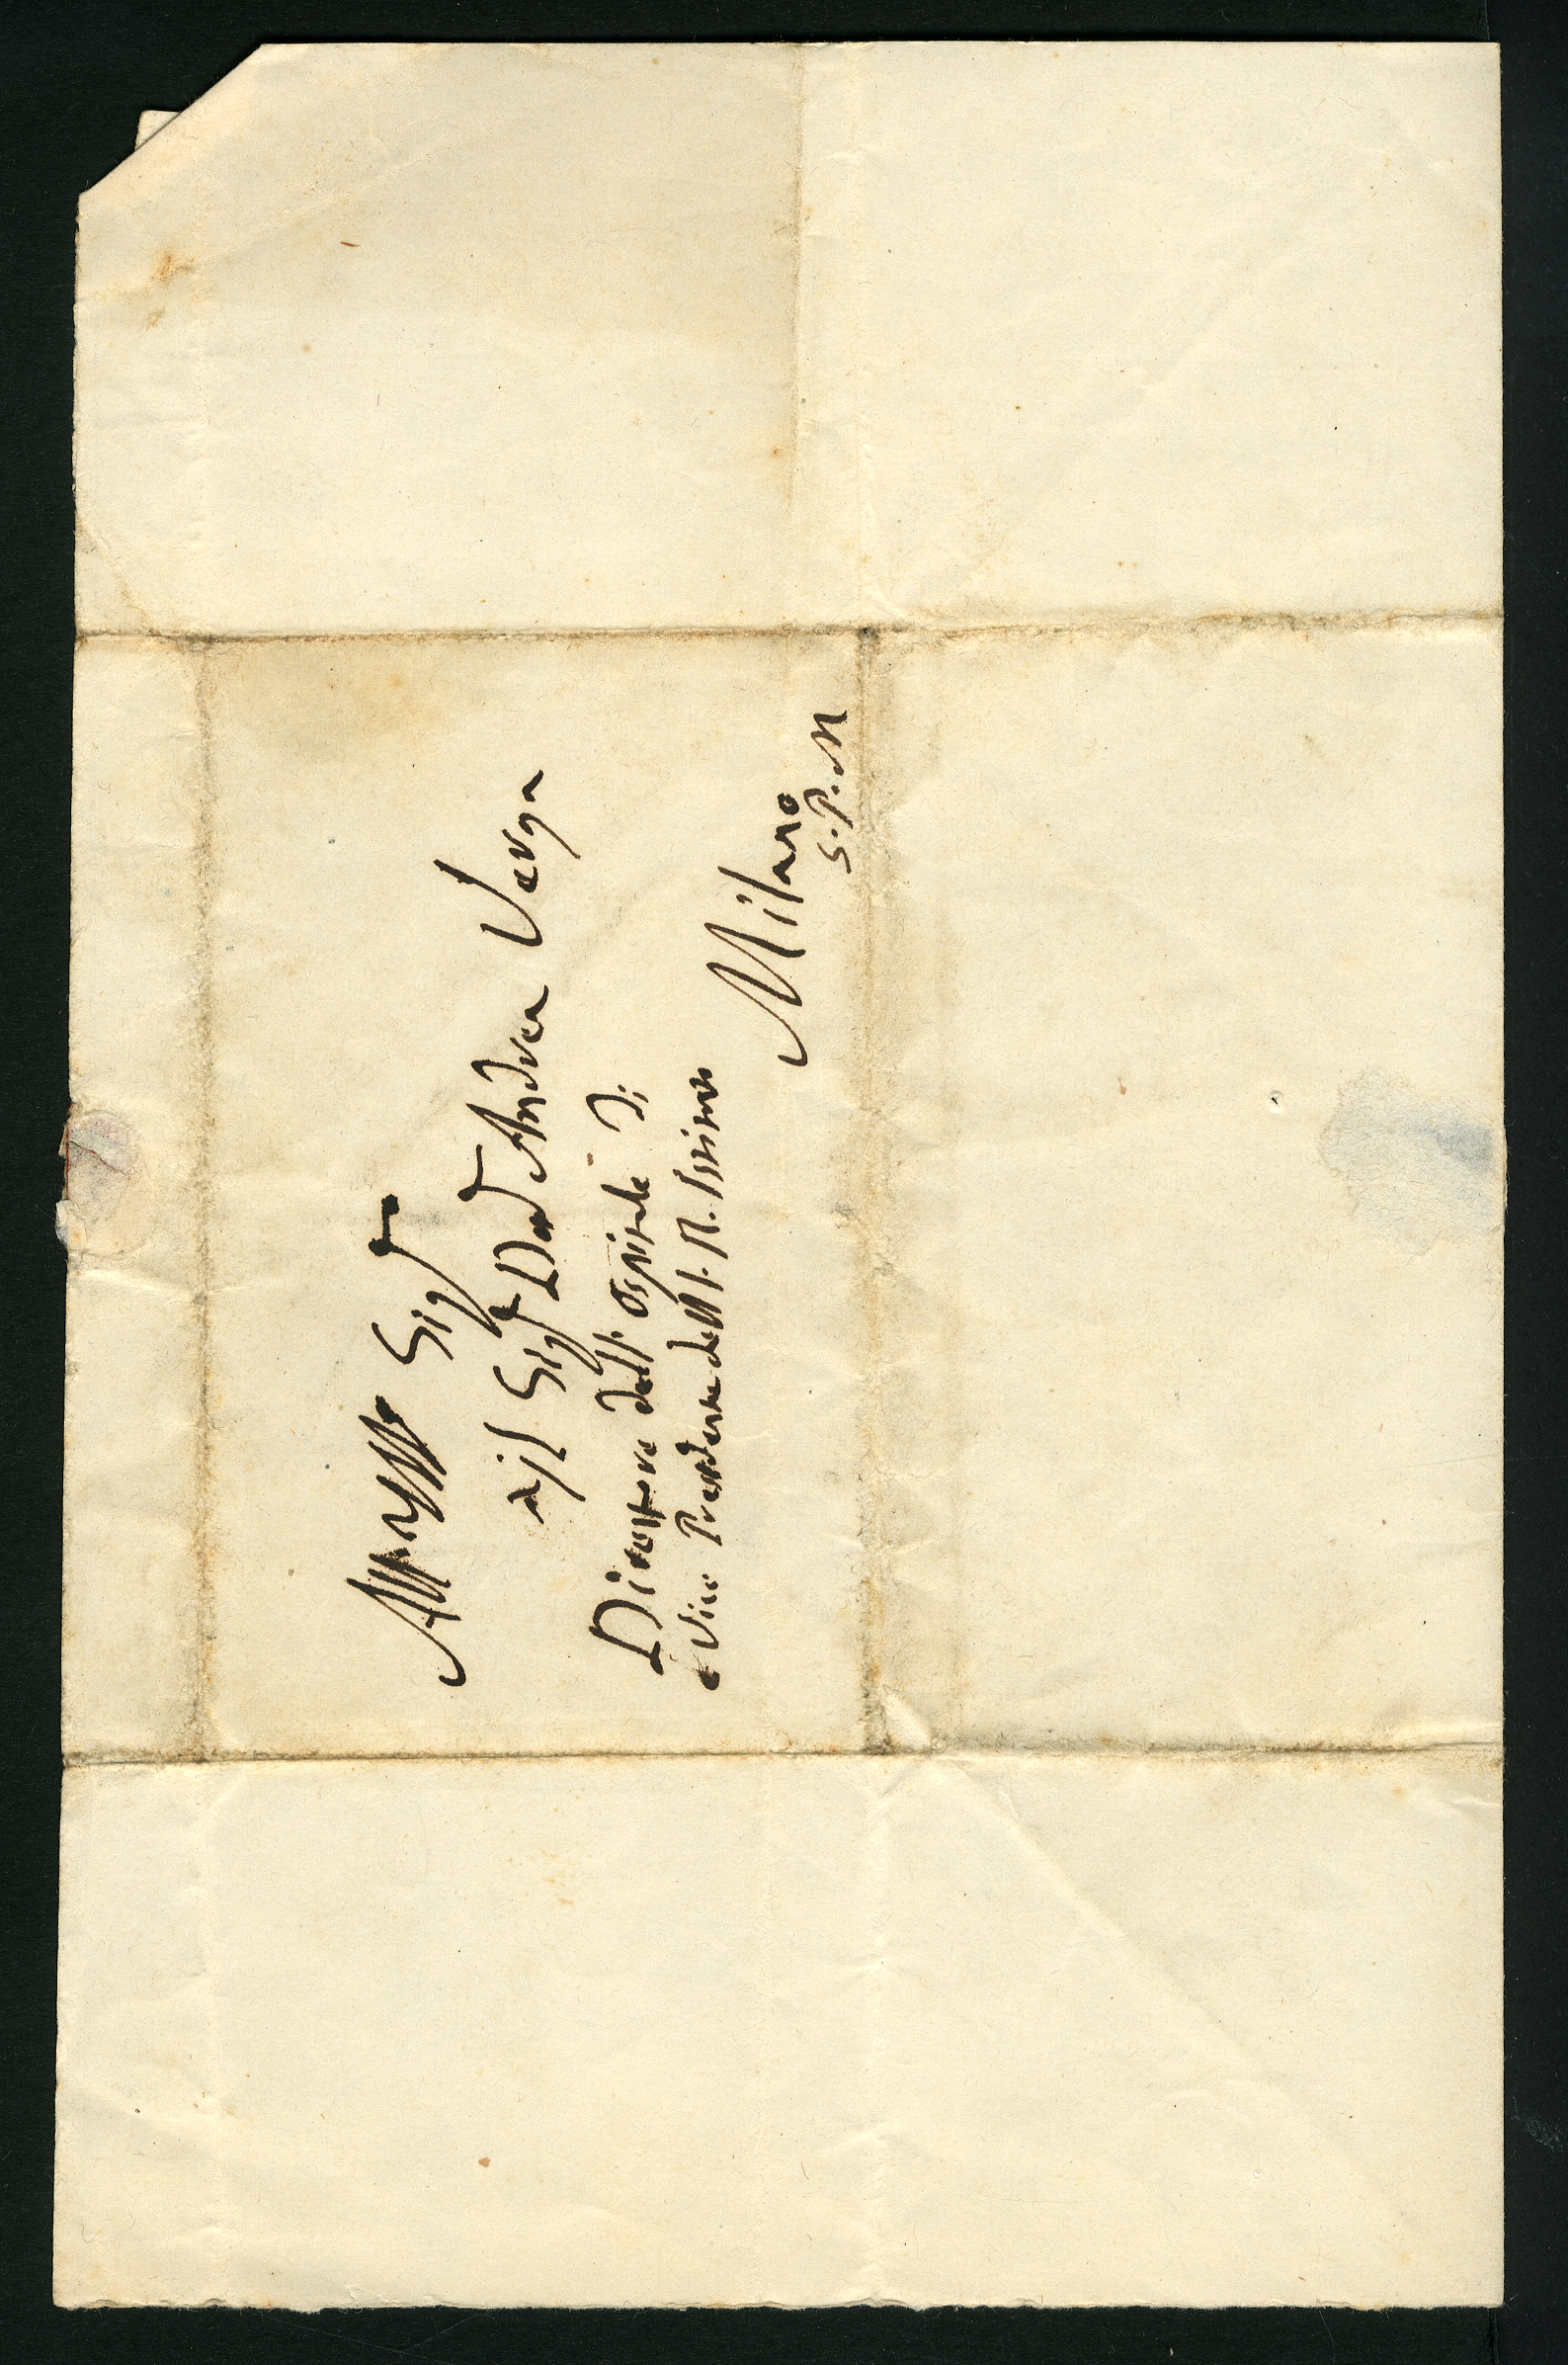 All' Sigr
il Sigr Dor Andrea Verga
Direttore dell' Ospitale di
e Vice Presidente dell' I. R. Istituto
Milano
S. P. M